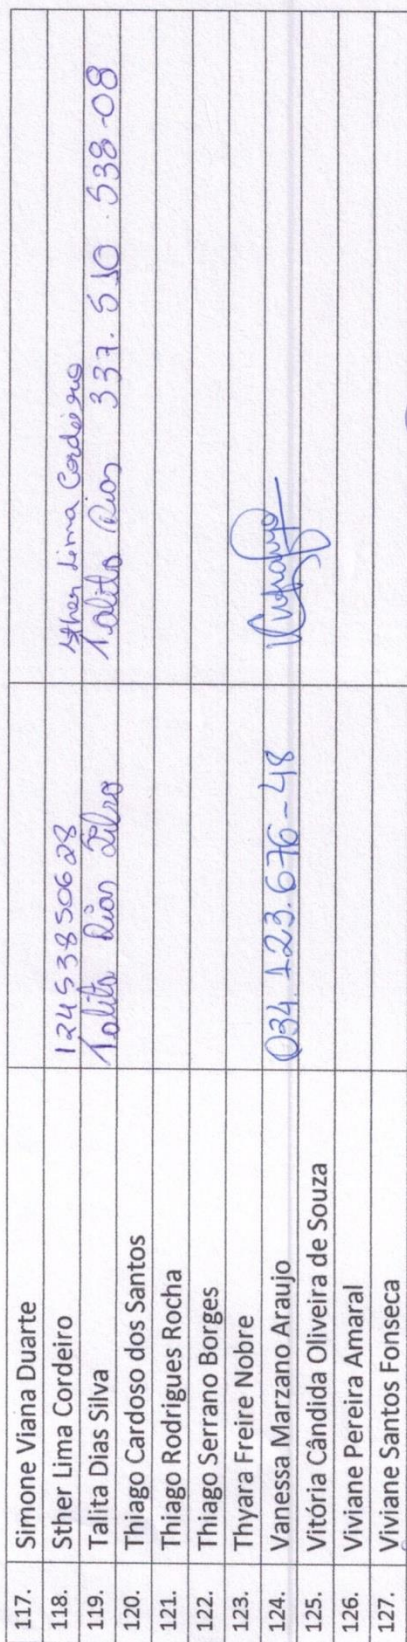 117. Simone Viana Duarte
118. Sther Lima Cordeiro 12453850628 Sther Lima Cordeiro
119. Talita Dias Silva Talita Dias Silva Talita Dias 337.510.538-08
120. Thiago Cardoso dos Santos
121. Thiago Rodrigues Rocha
122. Thiago Serrano Borges
123. Thyara Freire Nobre
124. Vanessa Marzano Araujo 034.123.676-48
125. Vitória Cândida Oliveira de Souza
126. Viviane Pereira Amaral
127. Viviane Santos Fonseca